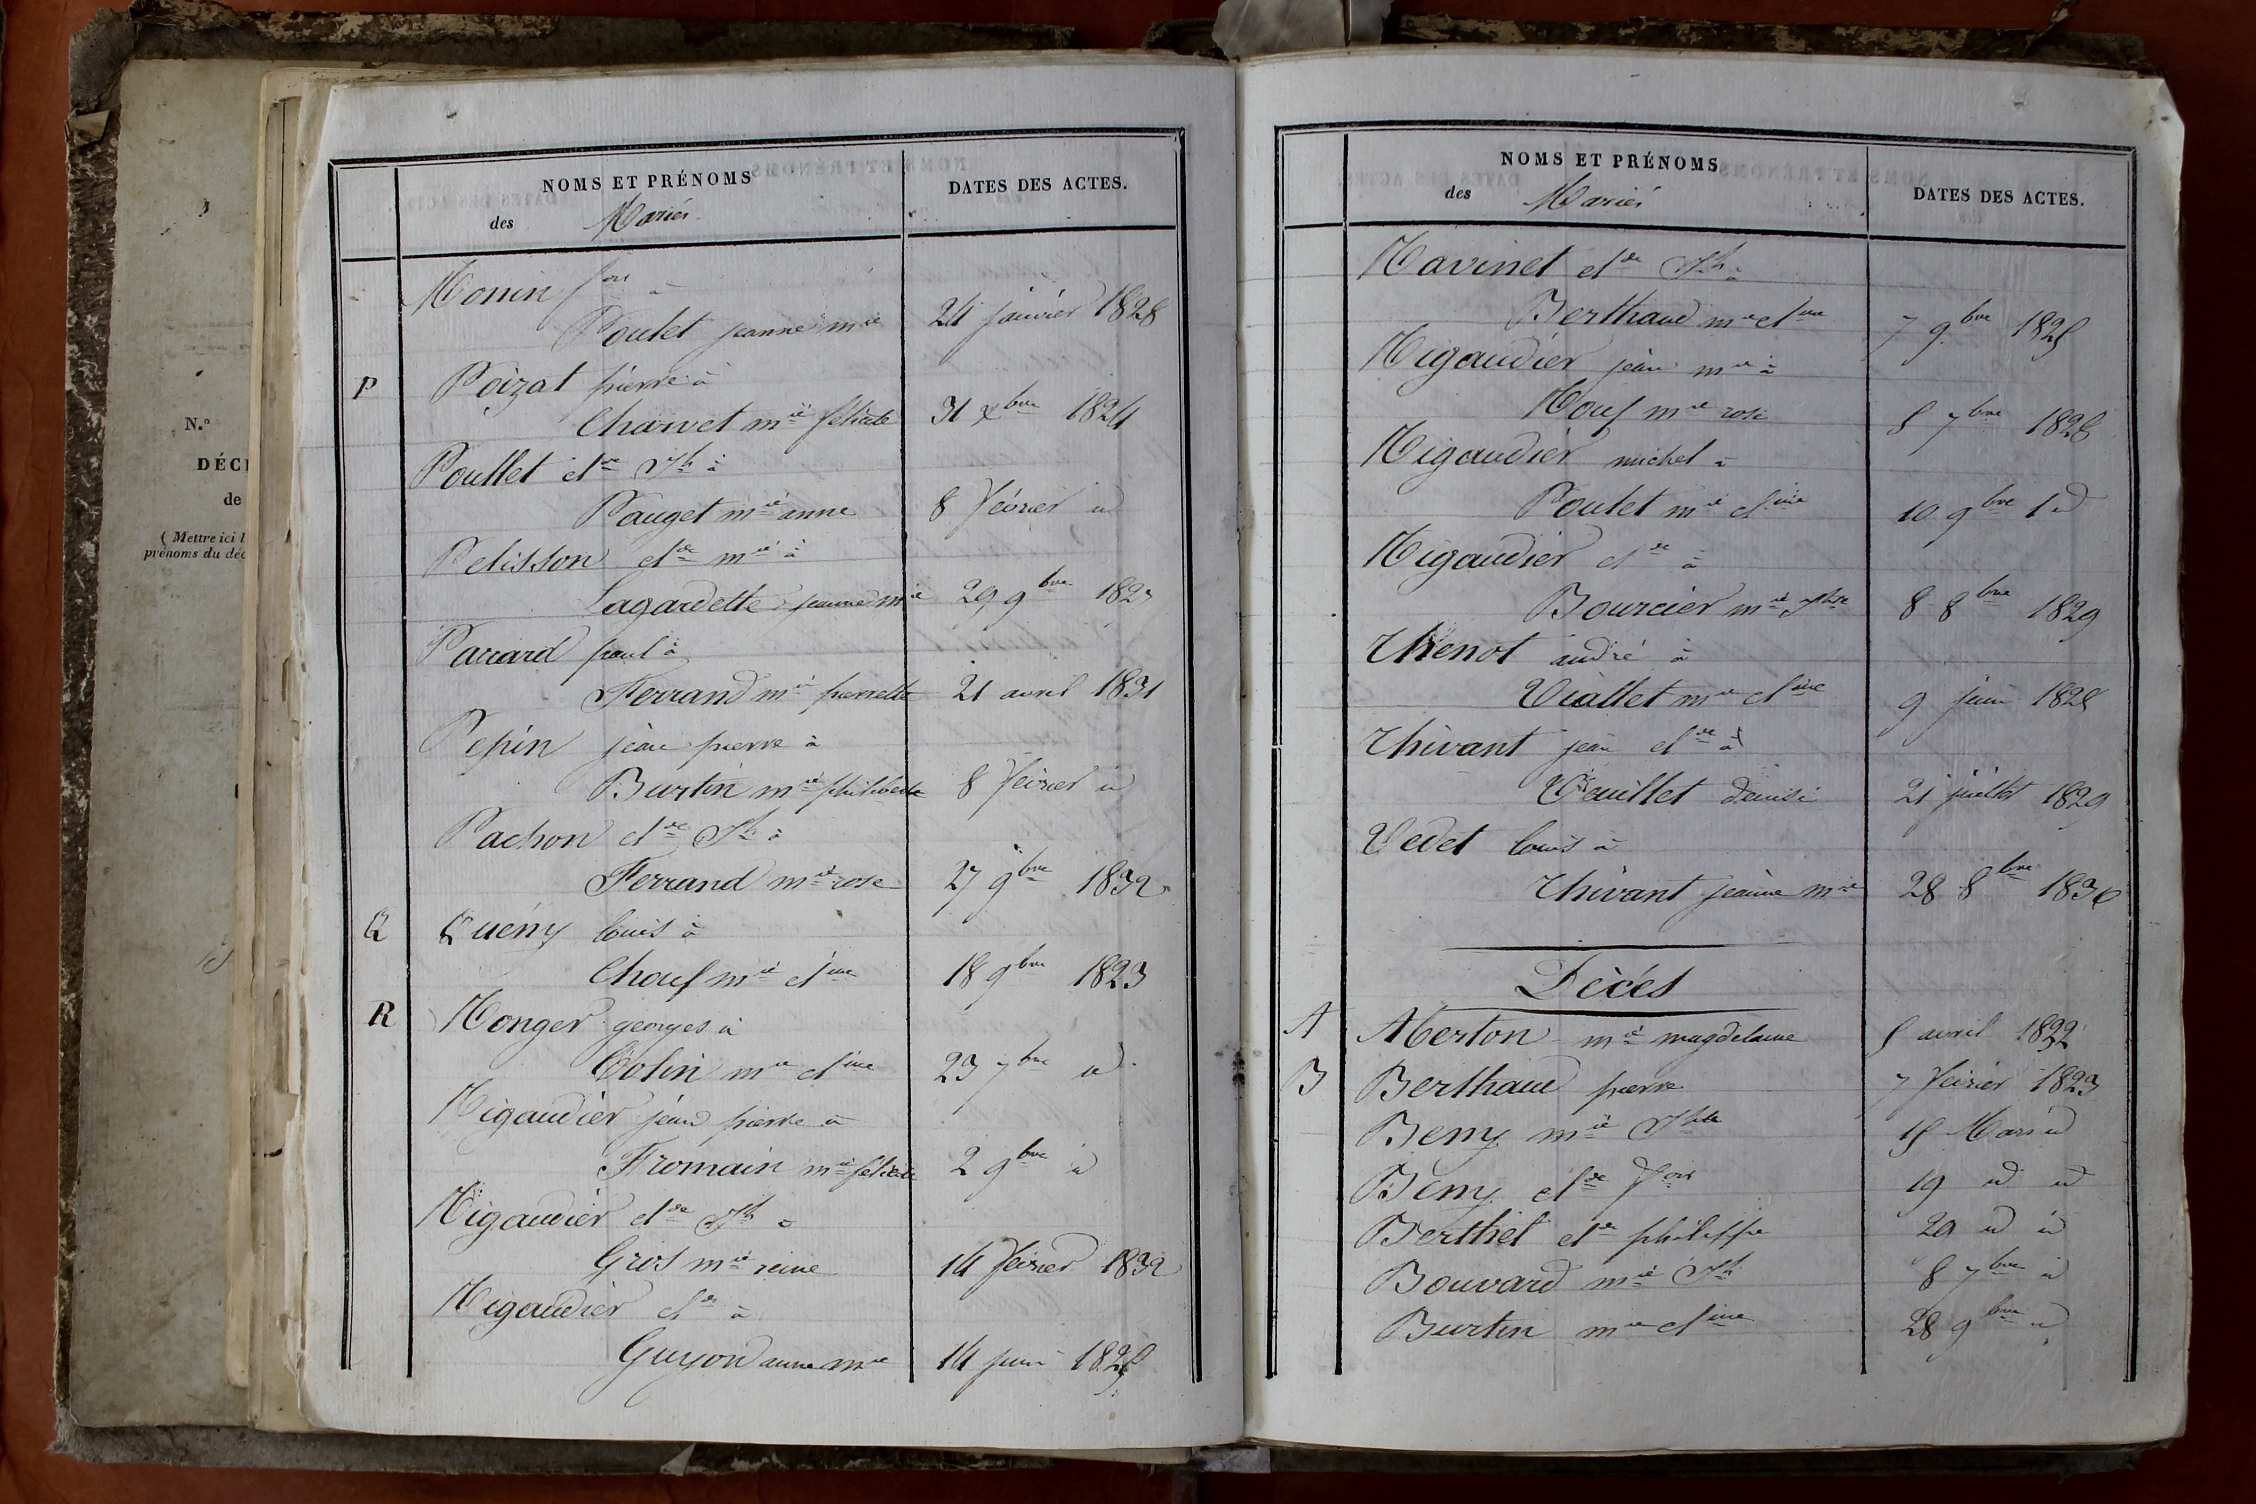 N.º
DÉCÈ
de
(Mettre ici l
prénoms du déc
NOMS ET PRÉNOMS
des Mariés
DATES DES ACTES.
Monin fois à
Poulet jeanne mie 24 janvier 1828
P Poizat pierre à
Charvet mie félicité 31 xbre 1824
Poullet cl de Jh à
Pauget mie anne 8 février id
Pelisson cl de mie à
Lagardette jeanne mie 29 9bre 1827
Parrard paul à
Ferrand mie pierrette 21 avril 1831
Pepin jean pierre à
Burtin mie philiberte 8 février id
Pachon cl de Jh à
Ferrand mie rose 27 9bre 1832
Q Quény louis à
Chouf mie cl ine 18 9bre 1823
R Ronger georges à
Colin mie cl ine 23 7bre id
Rigaudier jean pierre à
Fromain mie félicité 2 9bre id
Rigaudier cl de Jh à
Gros mie reine 14 février 1832
Rigaudier cl de à
Guyon anne mie 14 juin 1825
NOMS ET PRÉNOMS
des Mariés
DATES DES ACTES.
Ravinet cl de Jh à
Berthaud mie cl ine 7 9bre 1825
Rigaudier jean mie à
Rouf mie rose 5 7bre 1828
Rigaudier michel à
Poulet mie cl ine 10 9bre id
Rigaudier cl de à
Bourcier mie Jhte 8 8bre 1829
Thenot andré à
Viallet mie cl ine 9 juin 1825
Thivant jean cl de à
Veuillet denise 21 juillet 1829
Vedet louis à
Thivant jeanne mie 28 8bre 1830
Décés
A Aberton mie magdelaine 5 avril 1832
B Berthaud pierre 7 février 1823
Bemy mie Jhte 15 Mars id
Bemy cl de fois 19 id id
Berthet cl de philippe 20 id id
Bouvard mie Jh 8 7bre id
Burtin mie cl ine 28 9bre id